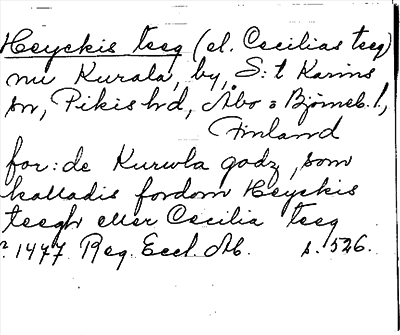 Heyckis teeg (el. Cecilias teeg)
nu Kurala, by, S:t Karins
sn, Pikis hd, Åbo o Björneb. l.,
Finland
for: de Kurwla godz, som
kalladis fordom Heyckis
teegh eller Cecilia teeg
1477 Reg. Eccl. Ab. s. 526.